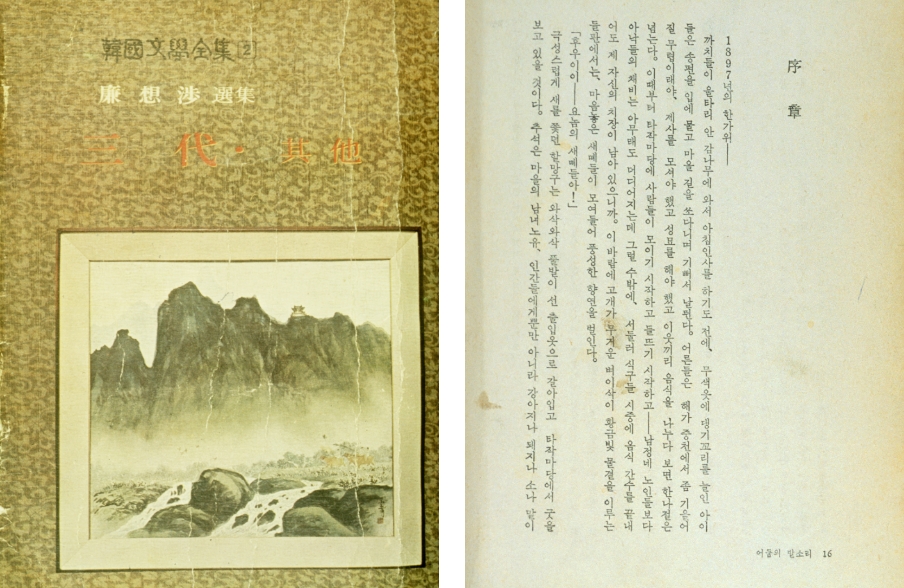 韓國文學全集[2]
廉想涉選集
三代·其他
序章
1897년의 한가위——
까치들이 울타리 안 감나무에 와서 아침인사를 하기도 전에, 무색옷에 댕기꼬리를 늘인 아이
들은 송편을 입에 물고 마을 길을 쏘다니며 기뻐서 날뛴다. 어른들은 해가 중천에서 좀 기울어
질 무렵이래야, 제사를 모셔야 했고 성묘를 해야 했고 이웃끼리 음식을 나누다 보면 한나절은
넘는다. 이때부터 타작마당에 사람들이 모이기 시작하고 들뜨기 시작하고——남정네 노인들보다
아낙들의 채비는 아무래도 더디어지는데 그럴 수밖에, 서둘러 식구들 시중에 음식 간수를 끝내
어도 제 자신의 치장이 남아 있으니까. 이 바람에 고개가 무거운 벼이삭이 황금빛 물결을 이루는
들판에서는, 마음놓은 새떼들이 모여들어 풍성한 향연을 벌인다.
「후우이이——요놈의 새떼들아!」
극성스럽게 새를 쫓던 할망구는 와삭와삭 풀발이 선 출입옷으로 갈아입고 타작마당에서 굿을
보고 있을 것이다. 추석은 마을의 남녀노유, 인간들에게뿐만 아니라 강아지나 돼지나 소나 말이
어둠의 발소리 16